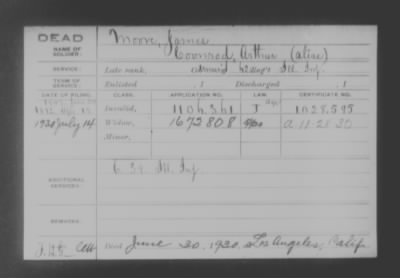 DEAD
NAME OF SOLDIER:
Moore, James
Coonrod, Arthur (alias)
SERVICE:
Late rank, Ill. Inf.
TERM OF SERVICE:
Enlisted , 1 Discharged , 1
DATE OF FILING. CLASS. APPLICATION NO. LAW. CERTIFICATE NO.
Invalid, 1106.361 J 1.028.595
1930 July 14 Widow, 1672808 A 11-28-30
Minor,
ADDITIONAL SERVICES:
C. 31 Ill. Inf.
REMARKS:
Died June 20, 1930, Los Angeles, Calif.